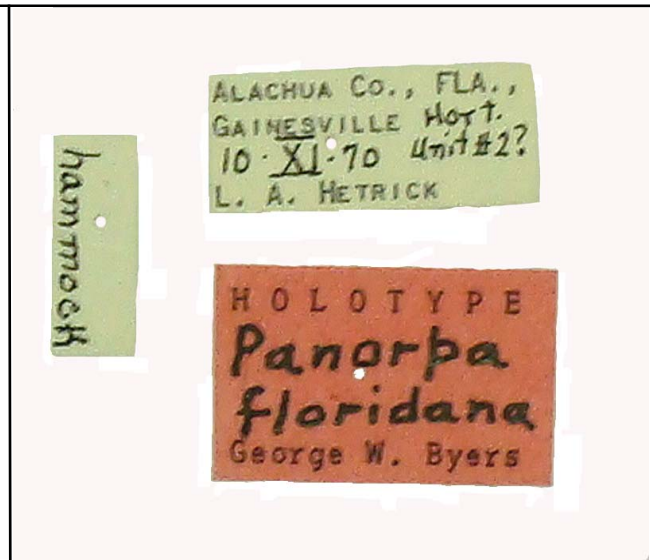 hammock
ALACHUA CO., FLA.,
GAINESVILLE Hort.
10·XI·70 Unit #2?
L. A. HETRICK
HOLOTYPE
Panorpa
floridana
George W. Byers